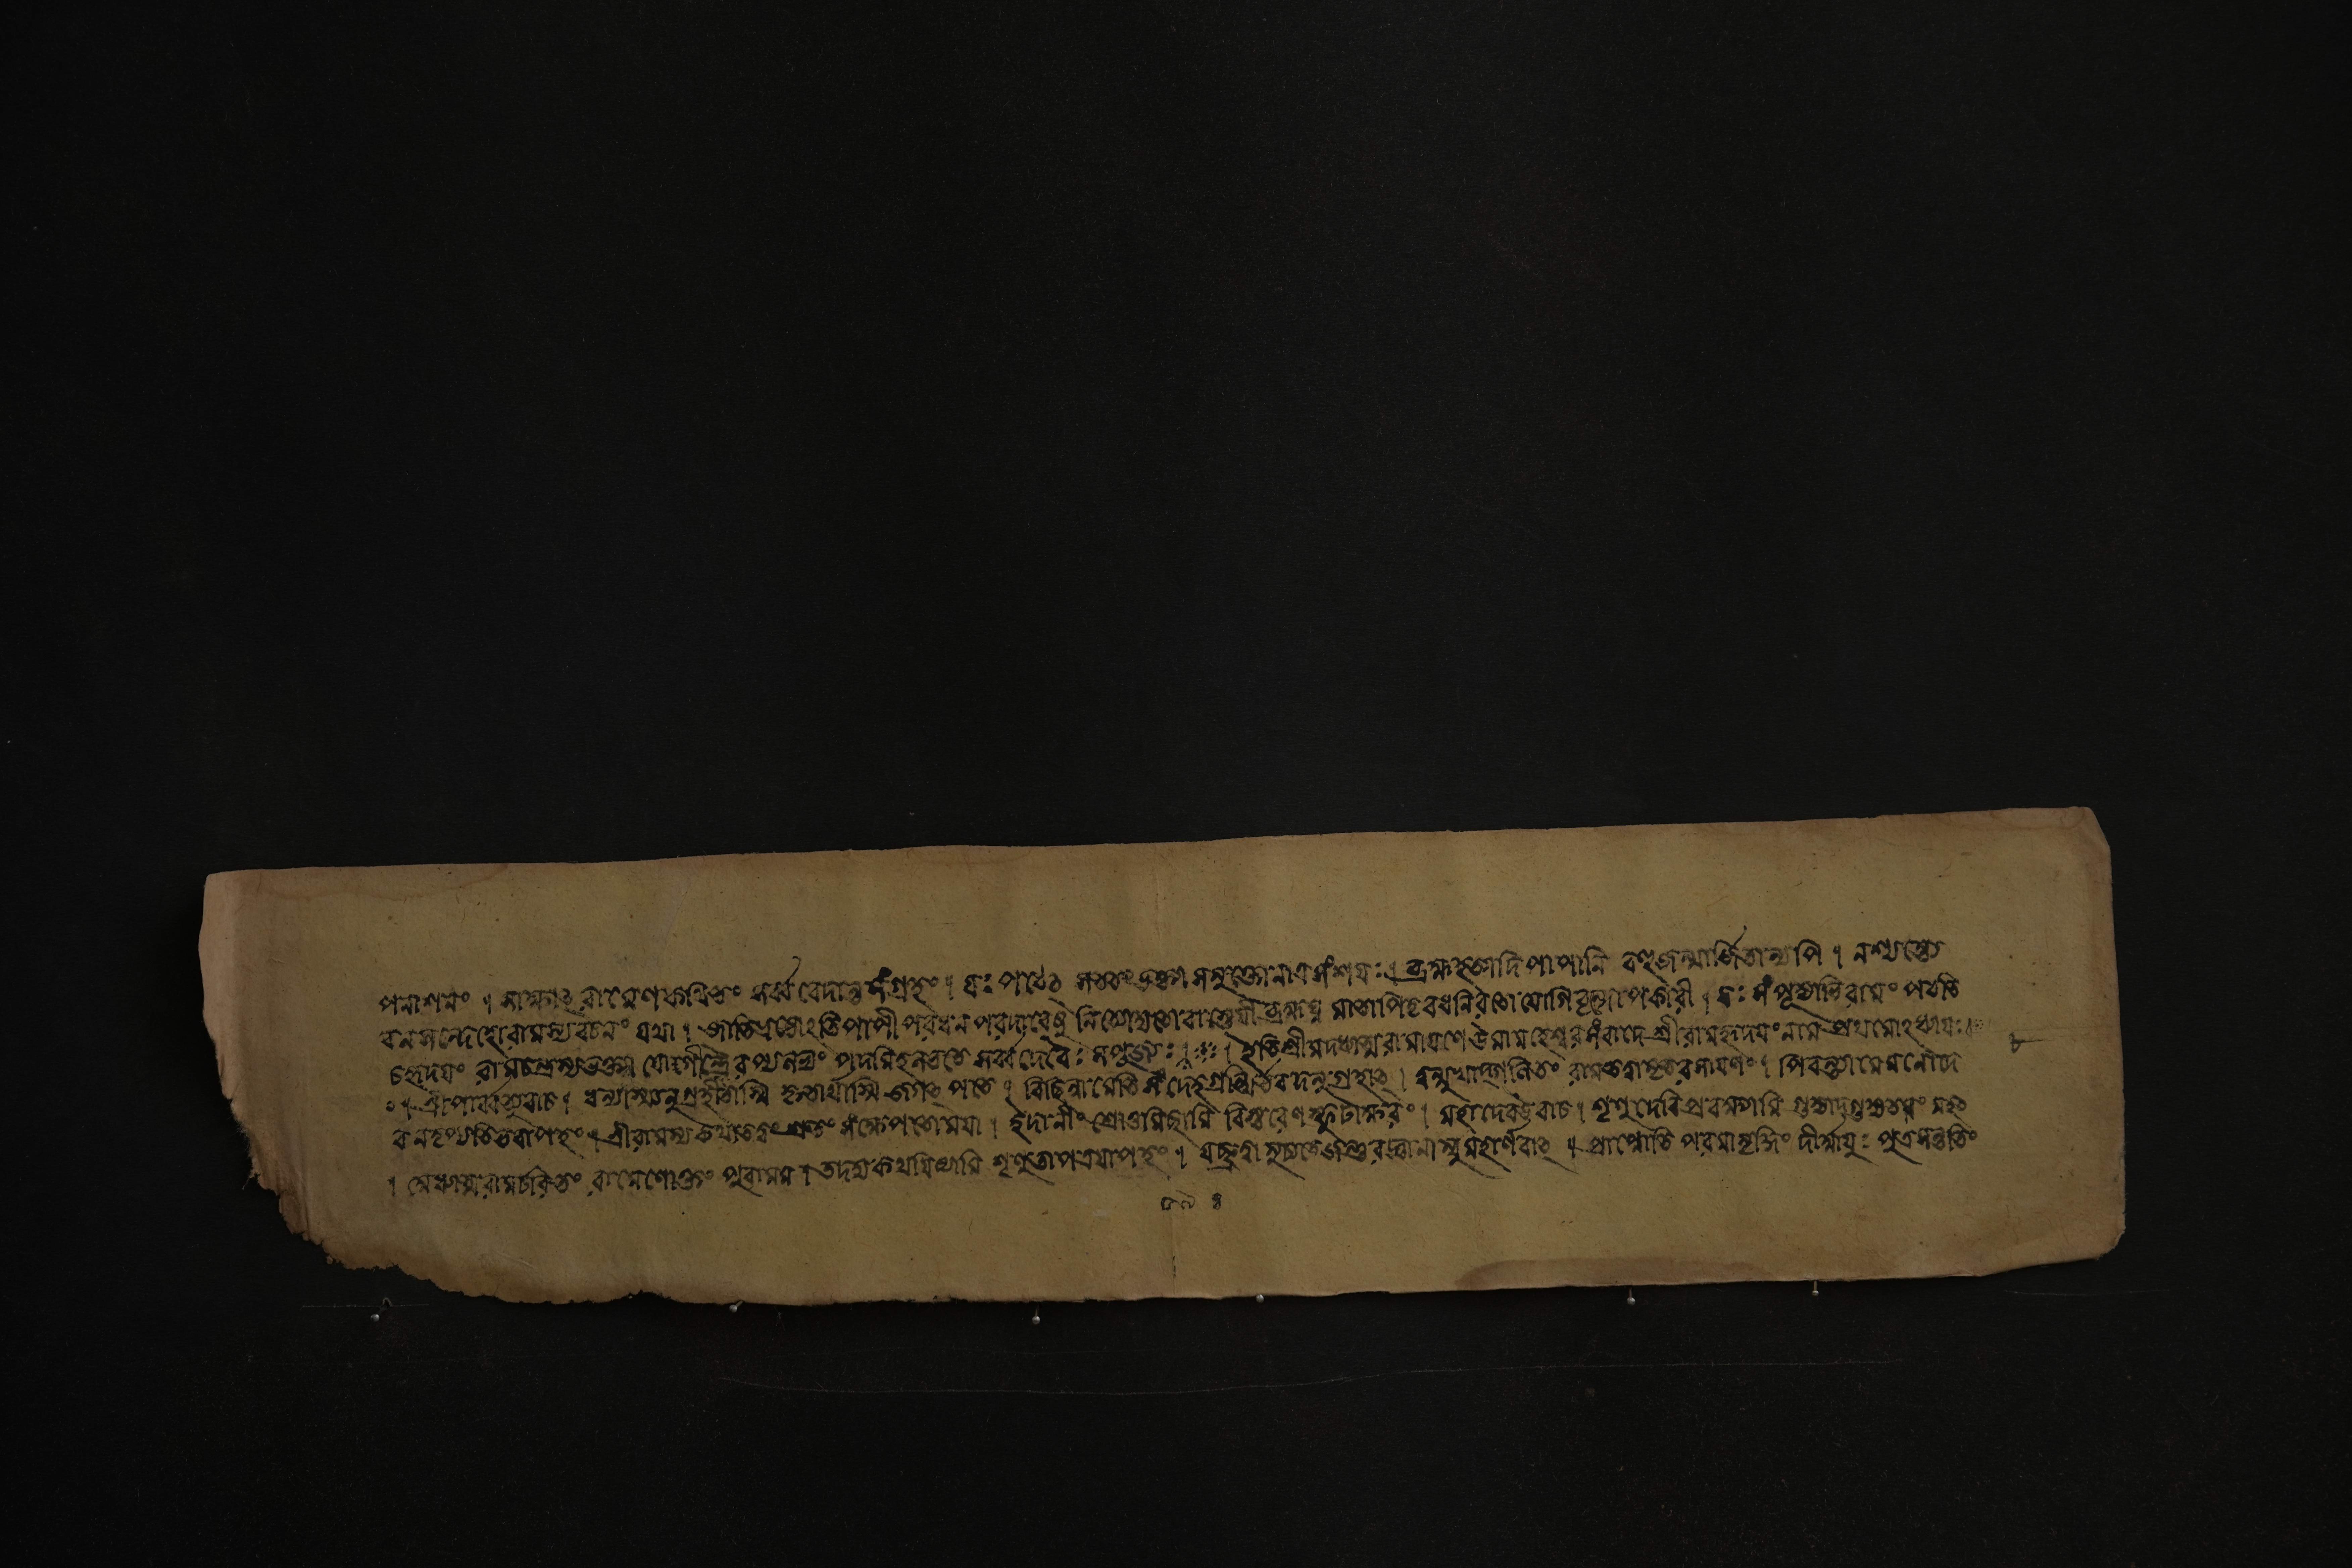 পনাশনং । সাক্ষাৎ রামেণ কথিতং সর্ব্ববেদান্তসংগ্রহং । যঃ পঠেৎ সততং ভক্ত্যা স মুক্তো নাত্র সংশযঃ । ব্রহ্মহত্যাদি পাপানি বহুজন্মার্জিতান্যপি । নশ্যন্ত্যে
বন সন্দেহো রামস্য বচনং যথা । জাতিভ্রষ্টোঽতিপাপী পরধন পরদারেষু নিত্যোদ্যতো বা স্তেযী ব্রহ্মঘ্ন মাতাপিতৃবধনিরতো যোগিবৃন্দাপকারী । যঃ সংপূজ্যাভিরামং পঠতি
চ হৃদযং রামচন্দ্রস্য ভক্ত্যা যোগীন্দ্রৈরপ্যলভ্যং পদমিহ লভতে সর্ব্বদেবৈঃ স পূজ্যঃ । ইতি শ্রীমদধ্যাত্মরামাযণে উমামহেশ্বরসংবাদে শ্রীরামহৃদযং নাম প্রথমোঽধ্যাযঃ ৮
ঃ । শ্রীপার্ব্বত্যুবাচ । ধন্যাস্ম্যনুগৃহীতাস্মি কৃতার্থাস্মি জগৎপতে । বিচ্ছিন্নো মেতি সংদেহগ্রন্থির্ভবদনুগ্রহাৎ । ত্বন্মুখাদ্গলিতং রামতত্ত্বামৃতরসাযণং । পিবন্ত্যা মে মনো দে
ব ন তৃপ্যতি ভবাপহং । শ্রীরামস্য কথাতত্ত্বং শ্রুতং সংক্ষেপতো মযা । ইদানীং শ্রোতুমিছামি বিস্তরেণ স্ফুটাক্ষরং । মহাদেব উবাচ । শৃণু দেবি প্রবক্ষ্যামি গুহ্যাদ্গুহ্যতমং মহৎ
। মেধ্যাত্মরামচরিতং রামেণোক্তং পুরা মম । তদদ্য কথযিষ্যামি শৃণু তাপত্রযাপহং । যচ্ছ্রুত্বা মুচ্যতে জন্তুরজ্ঞানাত্সুমহার্ণবাৎ । প্রাপ্নোতি পরমামৃদ্ধিং দীর্ঘাযুঃ পুত্রসন্ততিং